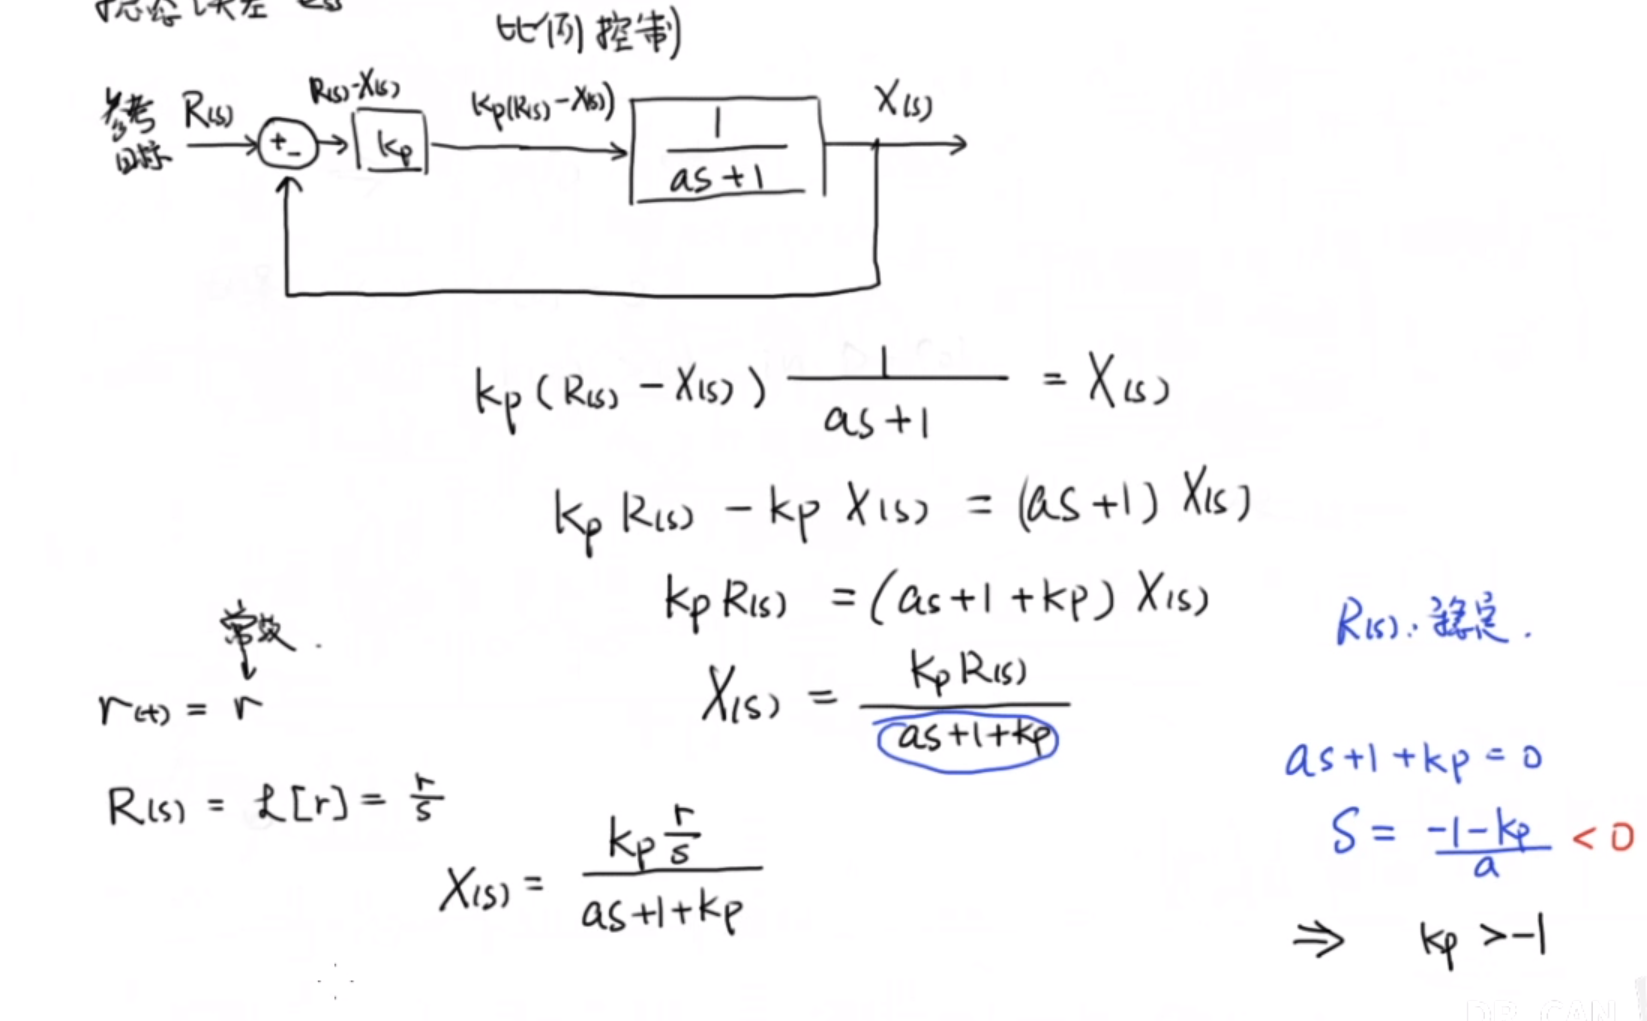 稳态误差 ess
比例控制
参考
目标
R(s)
+
-
R(s)-X(s)
kp
kp(R(s)-X(s))
1
as+1
X(s)
kp(R(s)-X(s)) 1/(as+1) = X(s)
kp R(s) - kp X(s) = (as+1) X(s)
kp R(s) = (as+1+kp) X(s)
X(s) = kp R(s)/(as+1+kp)
常数.
r(t) = r
R(s) = ℒ[r] = r/s
X(s) = kp r/s/(as+1+kp)
R(s): 稳定.
as+1+kp = 0
S = (-1-kp)/a < 0
⇒ kp > -1
DR_CAN